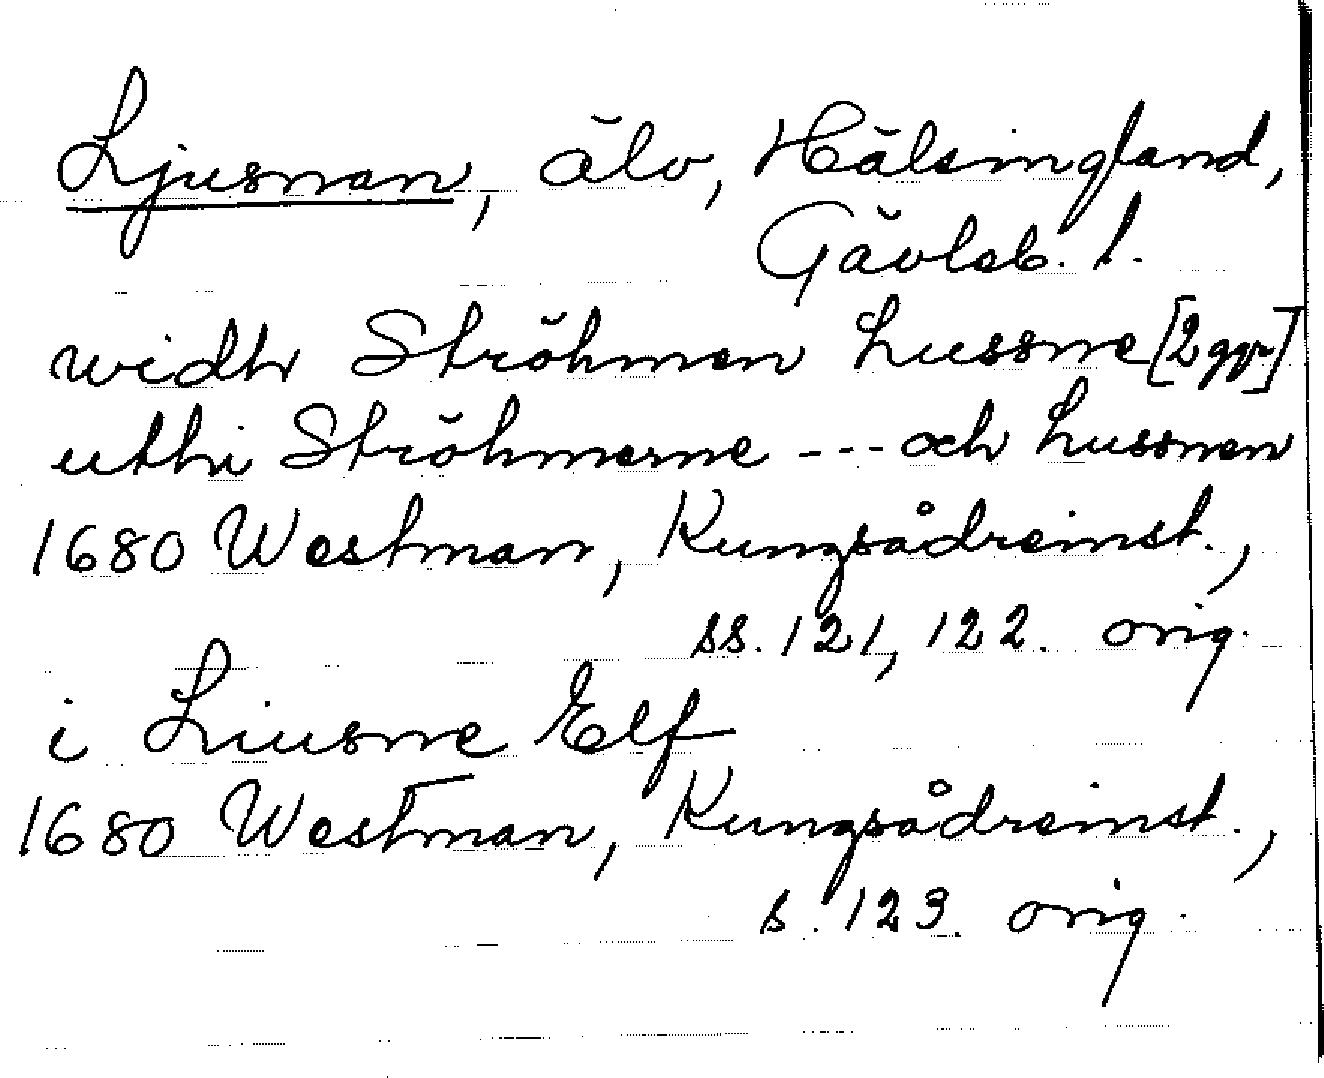 Ljusnan, älv, Hälsingland,
Gävleb. l.
widh Ströhmen Lussne [2 ggr]
uthi Ströhmerne --- och Lussnen
1680 Westman, Kungsådreinst.,
ss. 121, 122. orig.
i Liusne Elf
1680 Westman, Kungsådreinst.,
s. 123. orig.